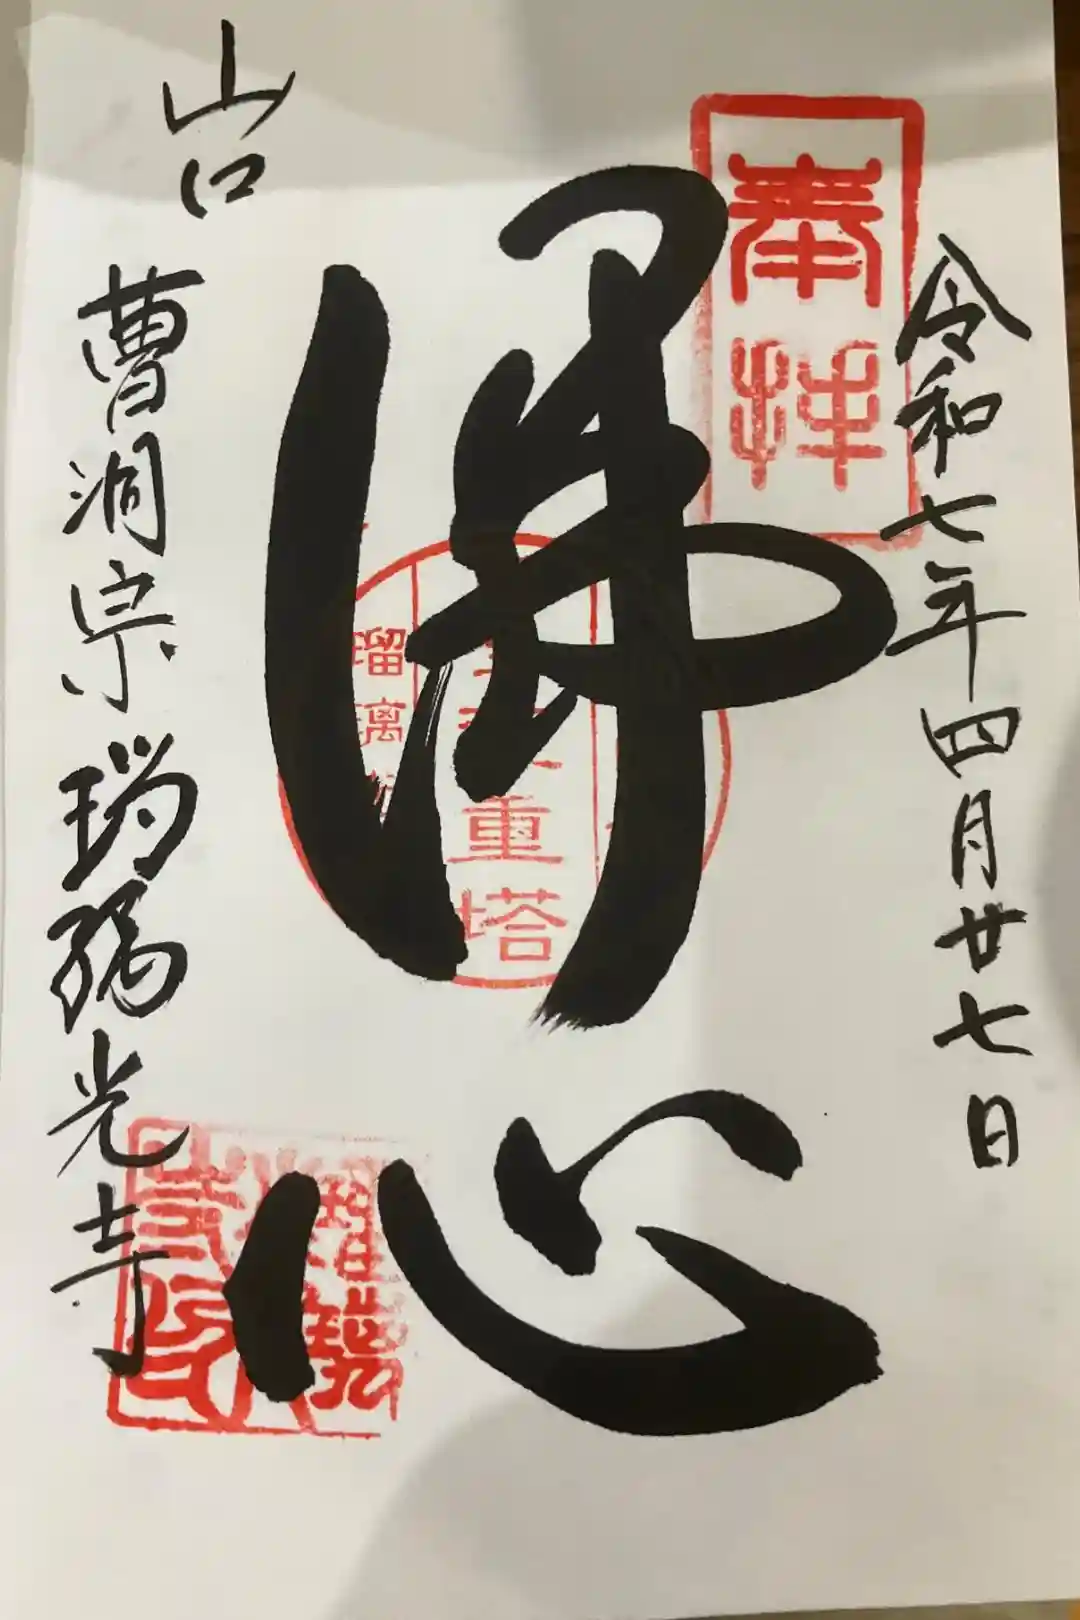 奉拝
令和七年四月廿七日
佛心
重塔
瑠璃
山口
曹洞宗瑠璃光寺